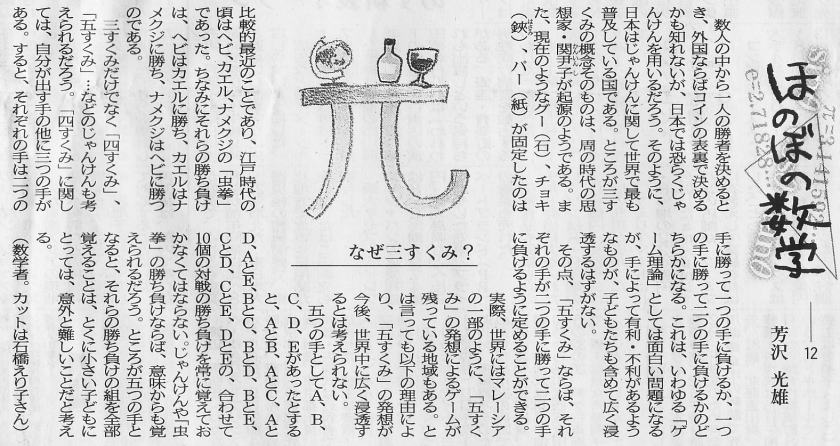 ほのぼの数学
12
芳沢 光雄
数人の中から一人の勝者を決めると
き、外国ならばコインの表裏で決める
かも知れないが、日本では恐らくじゃ
んけんを用いるだろう。そのように、
日本はじゃんけんに関して世界で最も
普及している国である。ところが三す
くみの概念そのものは、周の時代の思
想家・関尹子が起源のようである。ま
た、現在のようなグー(石)、チョキ
(鋏)、パー(紙)が固定したのは
比較的最近のことであり、江戸時代の
頃はヘビ、カエル、ナメクジの「虫拳」
であった。ちなみにそれらの勝ち負け
は、ヘビはカエルに勝ち、カエルはナ
メクジに勝ち、ナメクジはヘビに勝つ
のである。
三すくみだけでなく「四すくみ」、
「五すくみ」…などのじゃんけんも考
えられるだろう。「四すくみ」に関し
ては、自分が出す手の他に三つの手が
ある。すると、それぞれの手は二つの
手に勝って一つの手に負けるか、一つ
の手に勝って二つの手に負けるかのど
ちらかになる。これは、いわゆる「ゲ
ーム理論」としては面白い問題になる
が、手によって有利・不利があるよう
なものが、子どもたちも含めて広く浸
透するはずがない。
その点、「五すくみ」ならば、それ
ぞれの手が二つの手に勝って二つの手
に負けるように定めることができる。
なぜ三すくみ?
実際、世界にはマレーシア
の一部のように、「五すく
み」の発想によるゲームが
残っている地域もある。と
は言っても以下の理由によ
り、「五すくみ」の発想が
今後、世界中に広く浸透す
るとは考えられない。
五つの手としてA、B、
C、D、Eがあったとする
と、AとB、AとC、Aと
D、AとE、BとC、BとD、BとE、
CとD、CとE、DとEの、合わせて
10個の対戦の勝ち負けを常に覚えてお
かなくてはならない。じゃんけんや「虫
拳」の勝ち負けならば、意味からも覚
えられるだろう。ところが五つの手と
なると、それらの勝ち負けの組を全部
覚えることは、とくに小さい子どもに
とっては、意外と難しいことだと考え
る。
(数学者。カットは石橋えり子さん)